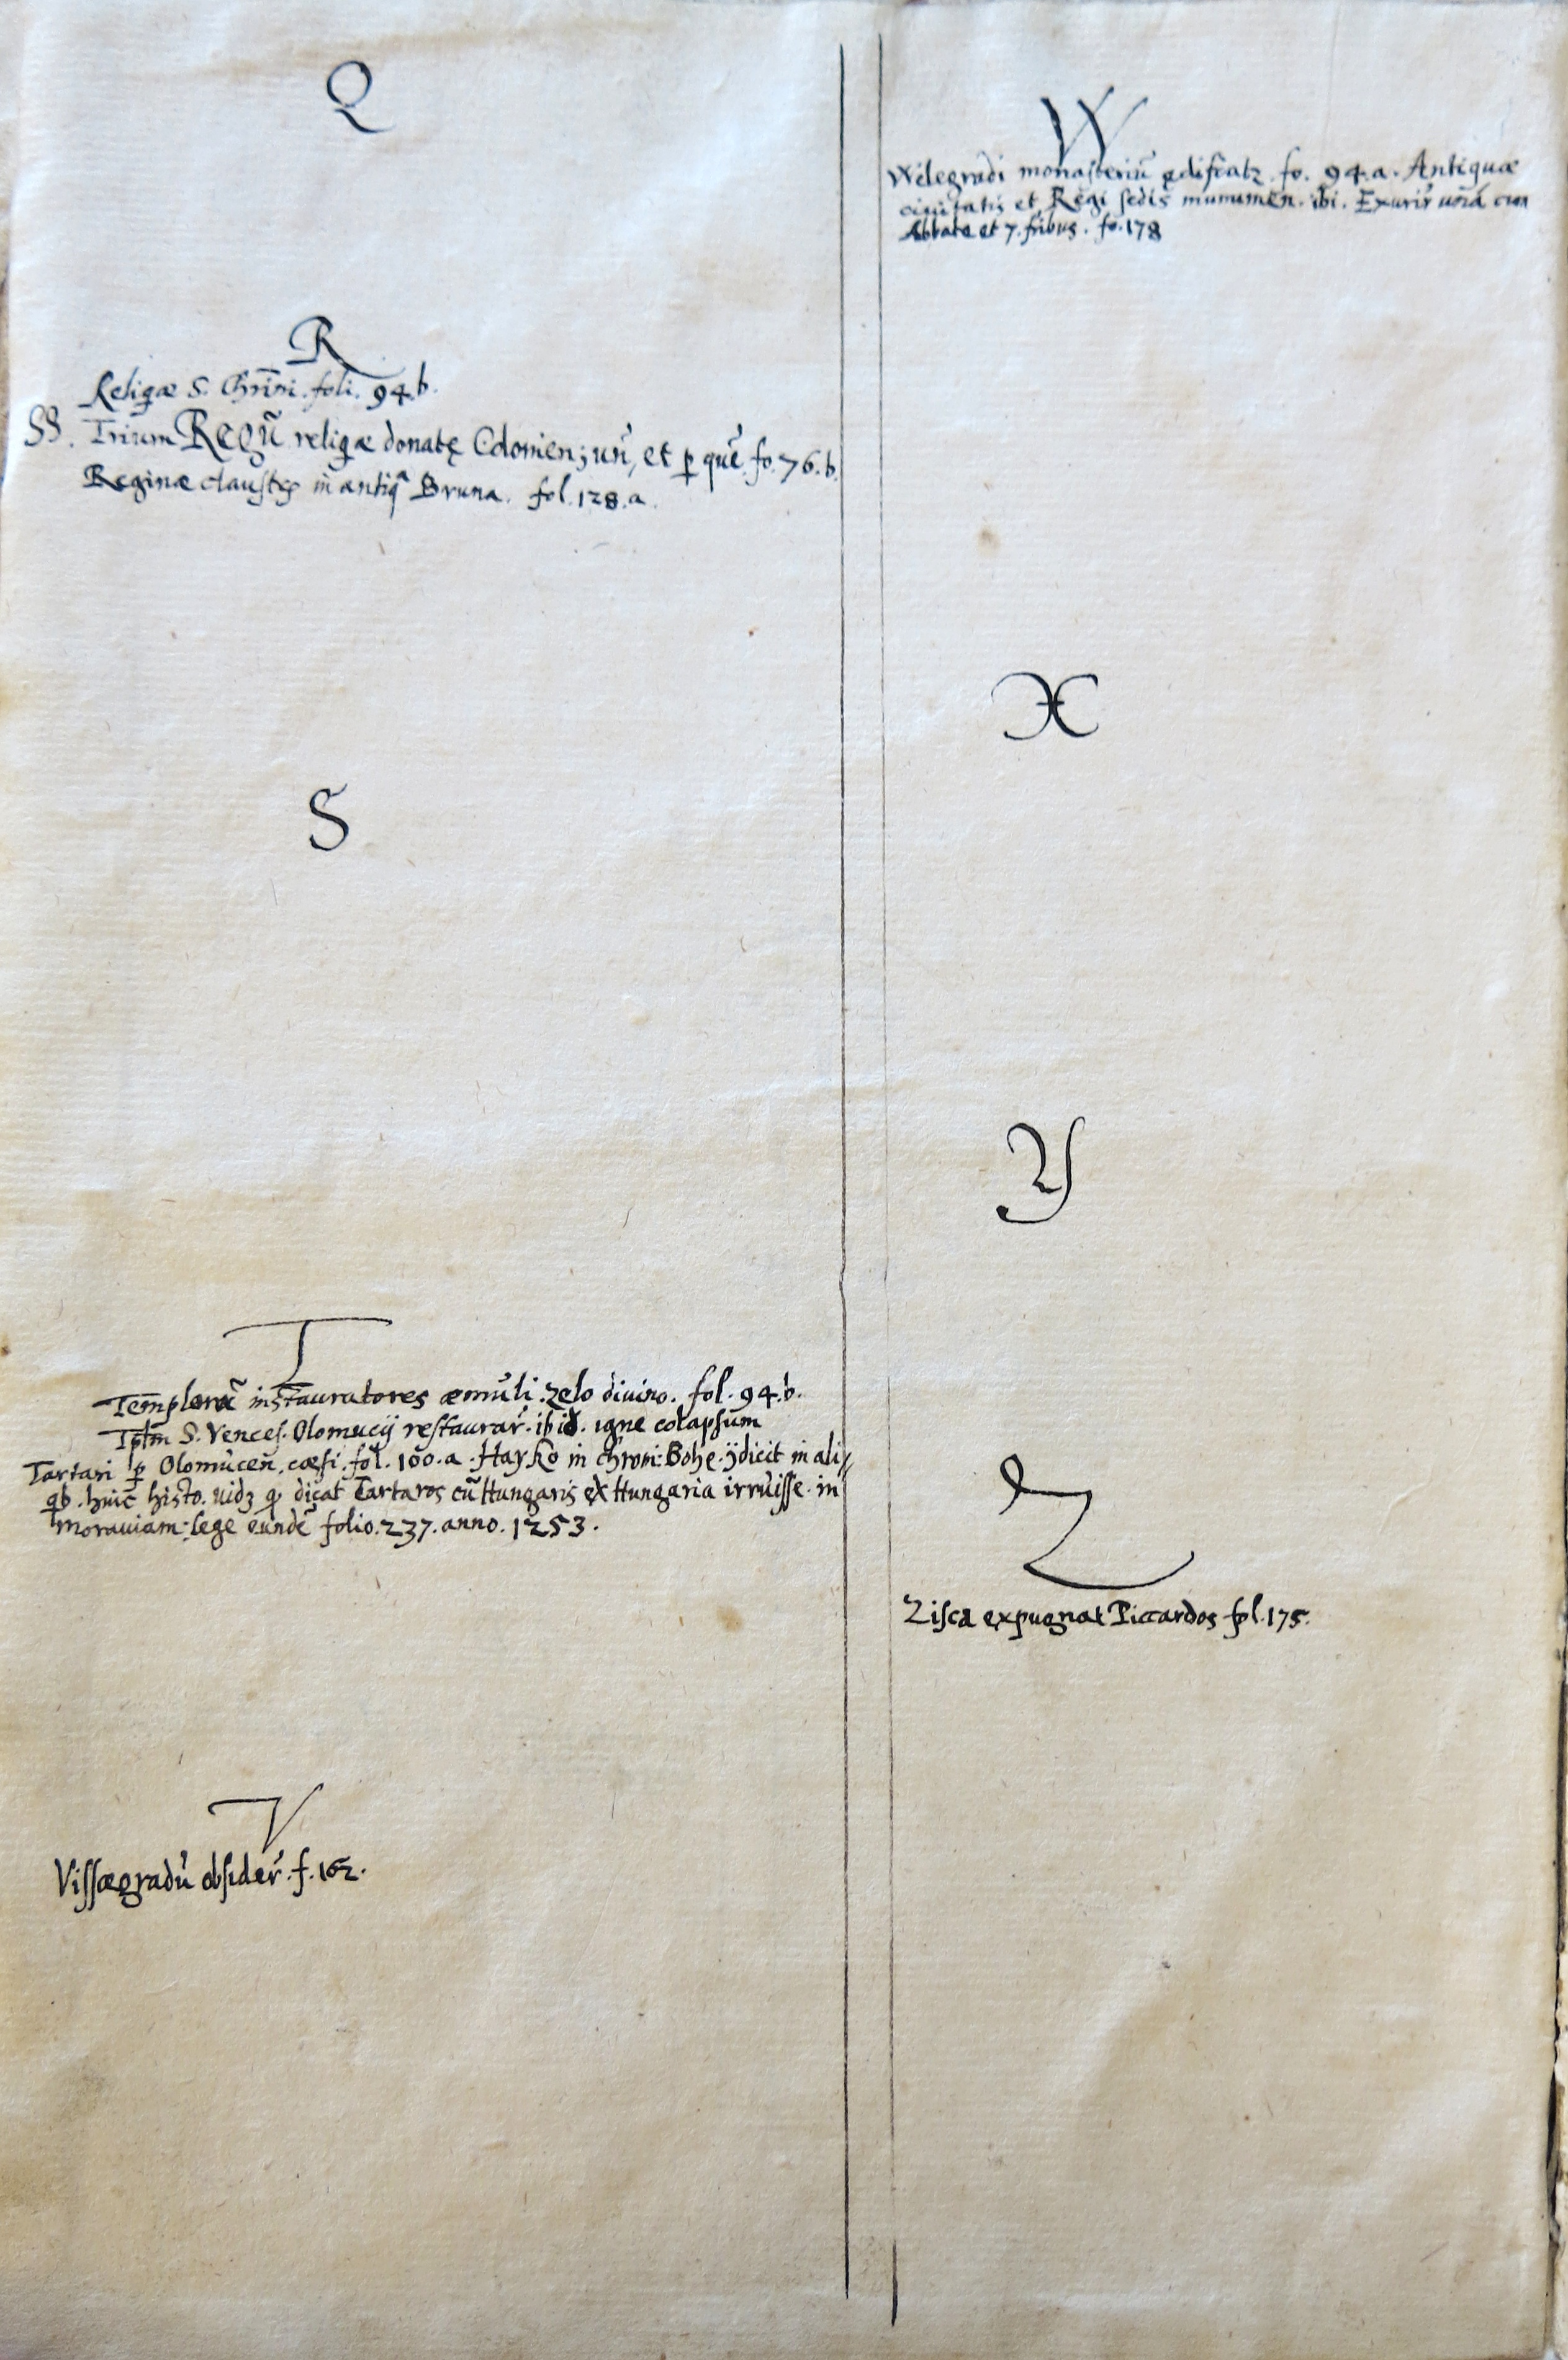 Q
R
Reliqæ S. Chrini. foli. 94.b.
SS. Trium Regũ reliqæ donatę Colonien; uñ, et p quẽ fo. 76.b.
Reginæ claustrũ in antiqa Bruna. fol. 128.a.
S
T
Templorũ instauratores æmuli zelo divino. fol. 94.b.
Tplm S. Vences. Olomucij restaurar. ibid. igne colapsum
Tartari p Olomucen̄. cæsi. fol. 100.a. Hayko in chroni: Bohę. dicit in ali
qb. huic histo. uidz dicat Tartaros cũ Hungaris ex Hungaria irruisse in
Morauiam: lege eundẽ folio. 237. anno. 1253.
V
Vissægradũ obsider. f. 162.
W
Welegradi monasteriũ ędificatz. fo. 94.a. Antiquæ
ciuitatis et Regi sedis munumen. ibi. Exurir unã cum
Abbate et 7. fribus. fo. 178
X
Y
Z
Zisca expugnat Piccardos fol. 175.